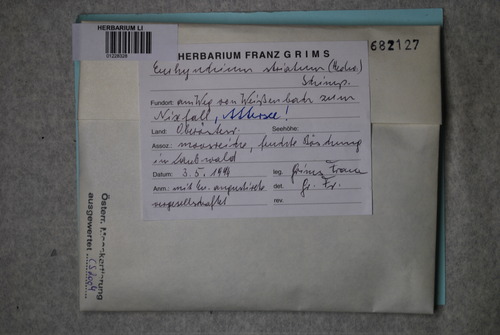 HERBARIUM LI
01228328
682127
HERBARIUM FRANZ GRIMS
Eurhynchium striatum (Hedw.)
Schimp.
Fundort: am Weg von Weißenbach zum
Nixfall, Attersee!
Land: Oberösterr. Seehöhe:
Assoz.: moosreiche, feuchte Böschung
in Laubwald
Datum: 3.5.1994 leg. Grims Franz
Anm.: mit Eu. angustirete det. Gr. Fr.
vergesellschaftet rev.
Österr. Mooskartierung
ausgewertet